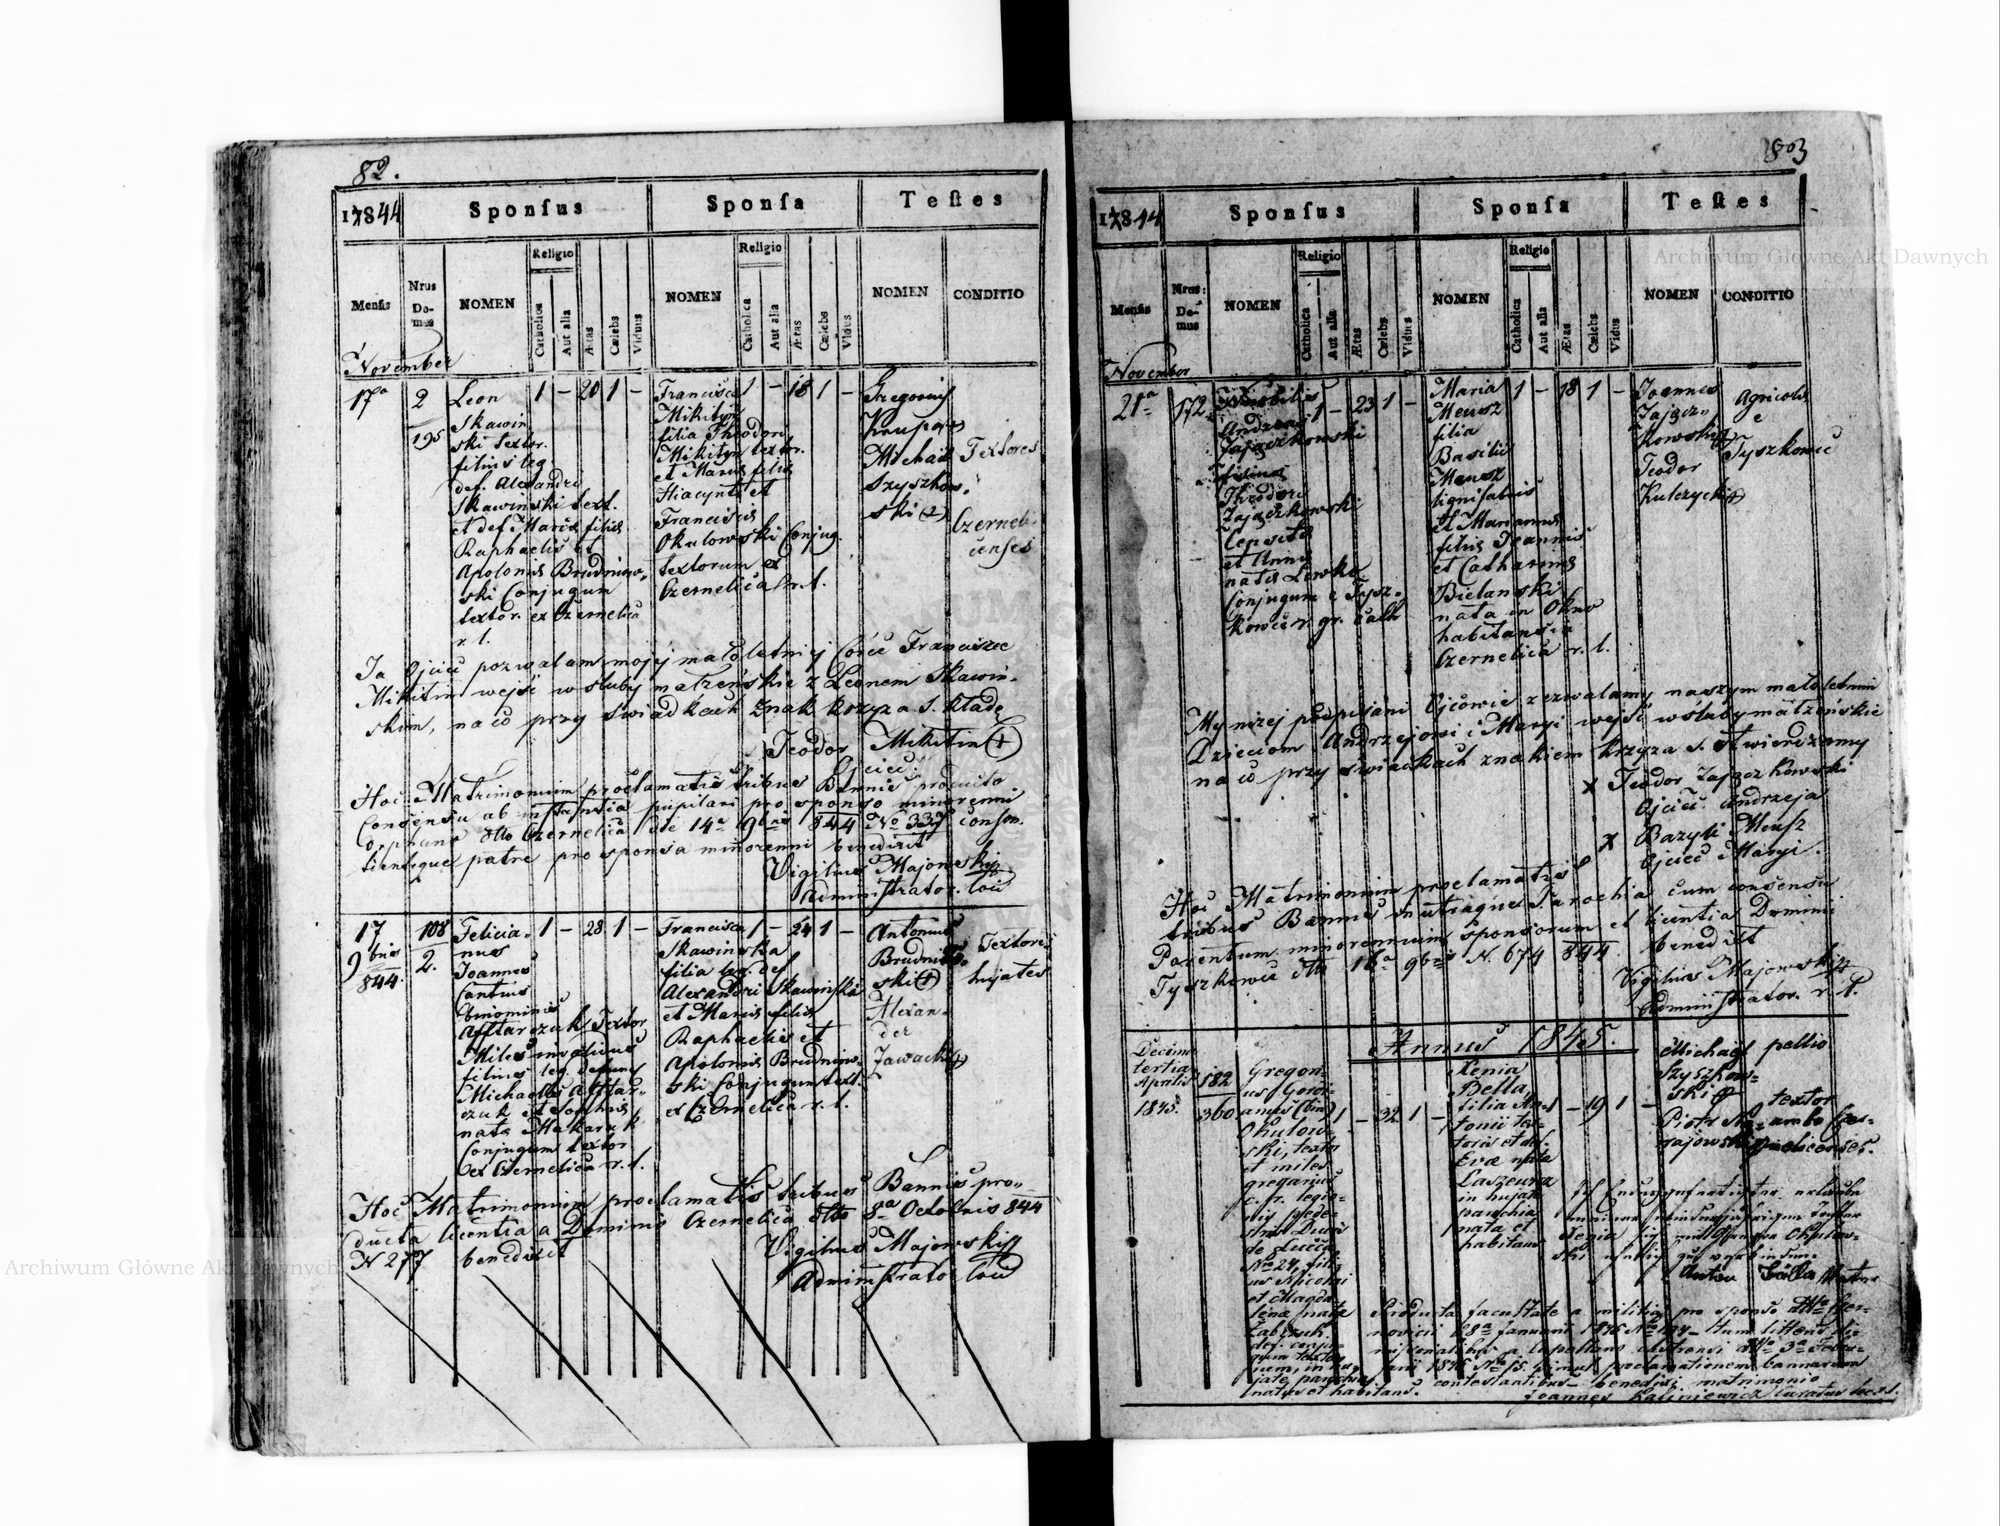 82.
17844
Sponſus
Sponſa
Teſtes
Menſis
Nrus Do-mus
NOMEN
Religio
Catholica
Aut alia
Ætas
Cœlebs
Viduus
NOMEN
Religio
Catholica
Aut alia
Ætas
Cœlebs
Vidua
NOMEN
CONDITIO
November
17a
2
195
Leon
Skawin
ski textor.
filius leg.
def. Alexandri
Skawinski text.
et def. Maria filia
Raphaelis et
Apolonis Brudniow-
ski Conjugum
textor. ex Czernelica
r. l.
1 – 20 1 –
Francisca
Mikityn
filia Theodori
Mikityn textor.
et Maria filia
Hiacynti et
Francisca
Okulowski Conjug.
textorum ex
Czernelica r. l.
1 – 18 1 –
Gregorius
Krupa +
Michael
Szyszkow-
ski (+)
Textores
Czerneli-
censes
Ja Ojciec pozwalam mojej małoletniej Córce Franciszce
Mikitin wejść w śluby małżeńskie z Leonem Skawiń-
skim, na co przy świadkach znak krzyża S. kładę
Teodor Mikitin (+)
Ojciec.
Hoc Matrimonium proclamatis tribus Bannis producto
Consensu ab instantia pupilari pro sponso minorenni
Orphano dtto Czernelica die 14a 9bris 844 No 337 consen-
tienteque patre pro sponsa minorenni benedixit
Vigilius Majewski
Administrator loci
17
9bris
844.
108
2.
Felicia-
nus
Joannes
Cantius
binominis
Afftarczuk Textor
Miles invalidus
filius leg. defunc.
Michaelis Afftar-
czuk et Sophia
nata Makaruk
Conjugum textor
ex Czernelica r. l.
1 – 28 1 –
Francisca
Skawinska
filia leg. def.
Alexandri Skawinski
et Maria filia
Raphaelis et
Apolonis Brudniow-
ski Conjugum text.
ex Czernelica r. l.
1 – 24 1 –
Antonius
Brudniow-
ski (+)
Alexan-
der
Zawacki +
Textores
hujates
Hoc Matrimonium proclamatis tribus Bannis pro-
ducta licentia a Dominio Czernelica dtto 8a Octobris 844
N 277 benedixit
Vigilius Majewski
Administrator loci
803
17844
Sponſus
Sponſa
Teſtes
Menſis
Nrus: Do-mus
NOMEN
Religio
Catholica
Aut alia
Ætas
Cœlebs
Viduus
NOMEN
Religio
Catholica
Aut alia
Ætas
Cœlebs
Vidua
NOMEN
CONDITIO
November
21a
172
Andreas
Zajączkowski
filius
Theodori
Zajączkowski
et Anna
nata Lewko
Conjugum e Tysz-
kowce r. gr. Cath
1 – 23 1 –
Maria
Meusz
filia
Basilii
Meusz
lignifabris
et Marianna
filia Joannis
et Catharina
Bielanski
nata in Okno
habitans in
Czernelica r. l.
1 – 18 1 –
Joannes
Zającz-
kowski +
Teodor
Kulczycki +
Agricola
e
Tyszkowce
My niżej podpisani Ojcowie zezwalamy naszym małoletnim
Dzieciom Andrzejowi i Maryi wejść w śluby małżeńskie
na co przy świadkach znakiem krzyża S. stwierdzamy
x Teodor Zajączkowski
Ojciec Andrzeja
x Bazyli Meusz
Ojciec Maryi.
Hoc Matrimonium proclamatis
tribus Bannis in utraque Parochia cum consensu
Parentum minorennium sponsorum et licentia Dominii
Tyszkowce dtto 16a 9bris N. 674 844 benedixit
Vigilius Majewski
Administrator. r. l.
Annus 1845.
Decima
tertia
Aprilis
1845.
182
360
Gregori-
us
Okulow-
ski, textor
et miles
gregarius
legio-
nis pede-
stris Ducis
de Lucca
No 24, fili-
us Nicolai
et Magda-
lena nata
natus et habitans.
1 – 32 1 –
Xenia
Bella,
filia An-
tonii tex-
toris et def.
Eva nata
in hujate
parochia
nata et
habitans
1 – 19 1 –
Michael
Szyszkow-
ski +
Piotr
pellio
textor
ambo Czer-
nelicenses.
Producta facultate a militia pro sponso
novicii 28a Januarii 1845
1845 No 15. simul proclamationem bannorum
contestantibus – benedixi matrimonio
Joannes Curatus loci r. l.
Archiwum Główne Akt Dawnych
Archiwum Główne Akt Dawnych